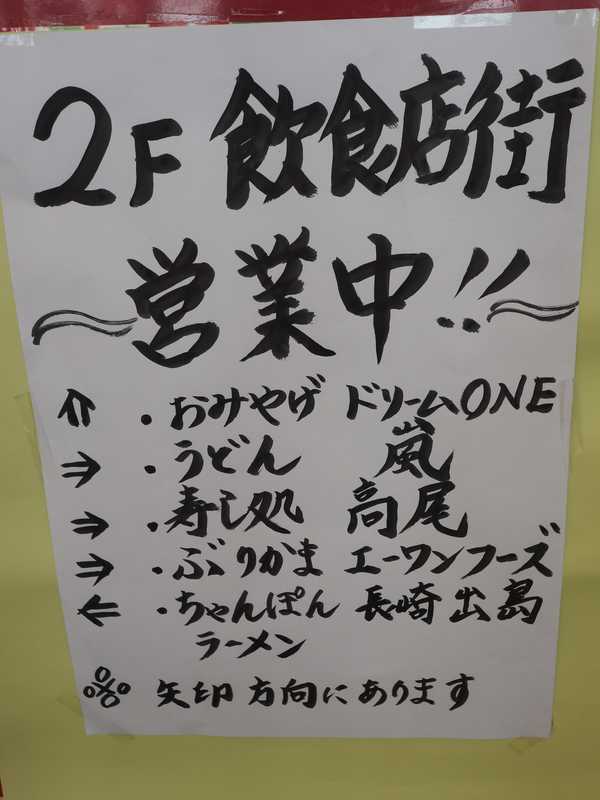 2F 飲食店街
〜営業中!!〜
⇑ ・おみやげ ドリームONE
⇒ ・うどん 嵐
⇒ ・寿し処 高尾
⇒ ・ぶりかま エーワンフーズ
⇐ ・ちゃんぽん 長崎出島
ラーメン
※ 矢印方向にあります